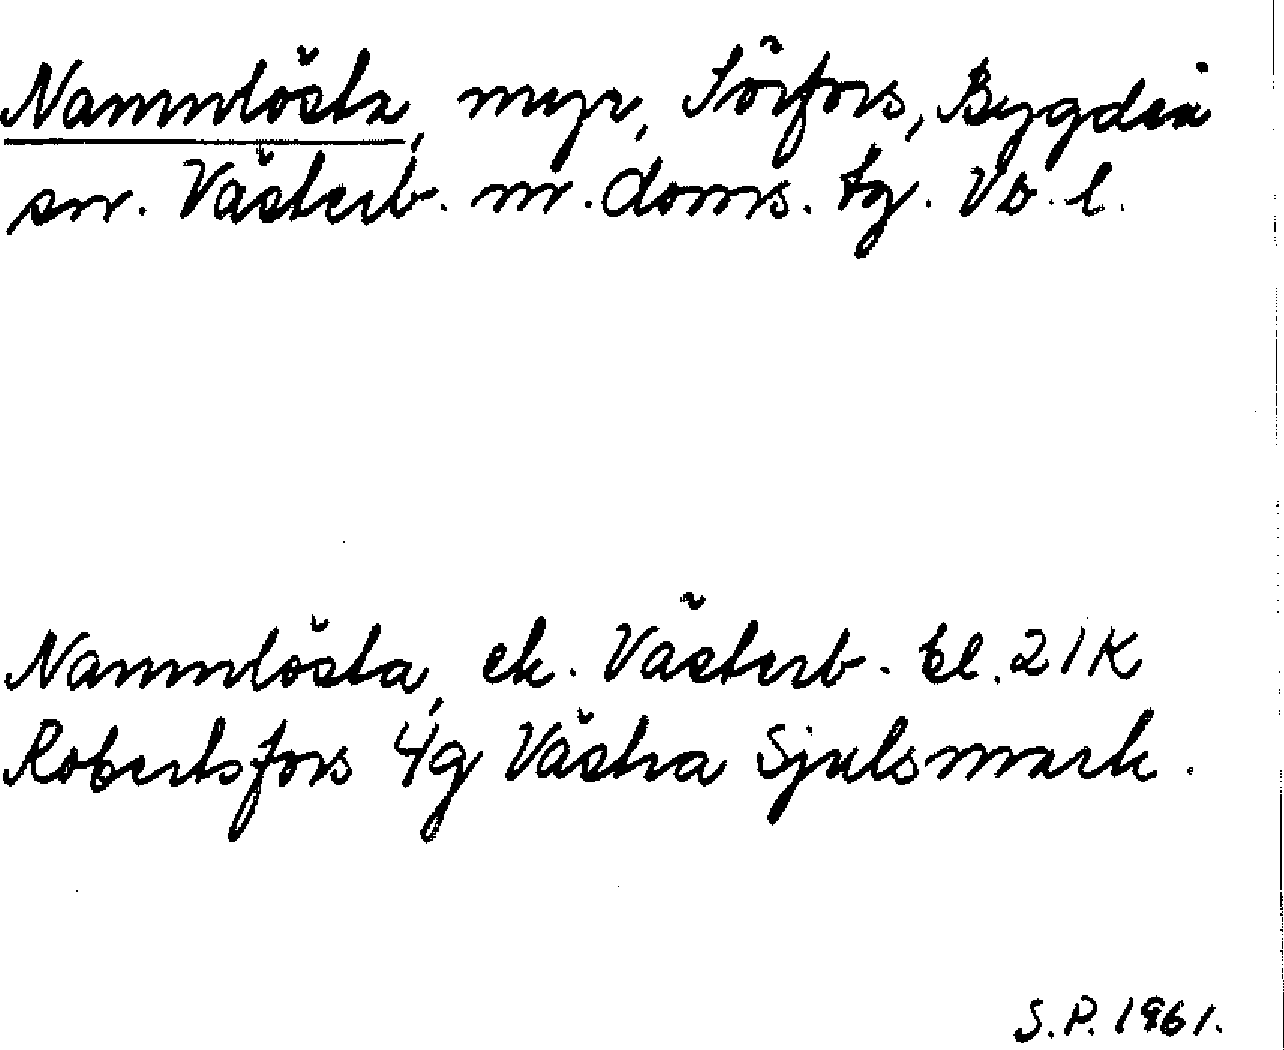 Namnlösta, myr, Sörfors, Bygdeå
sn. Västerb. n. doms. tg. Vb. l.
Namnlösta, ek. Västerb. bl. 21K
Robertsfors 4g Västra Sjulsmark.
S.P. 1961.